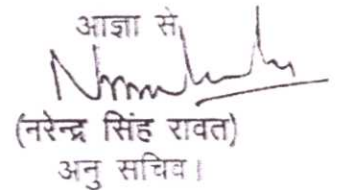 आज्ञा से,
(नरेन्द्र सिंह रावत)
अनु सचिव।